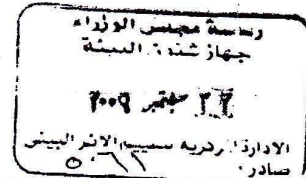 رئاسة مجلس الوزراء
جهاز شئون البيئة
٢٣ سبتمبر ٢٠٠٩
الادارة المركزيه لتقييم الاثر البيئى
صادر: